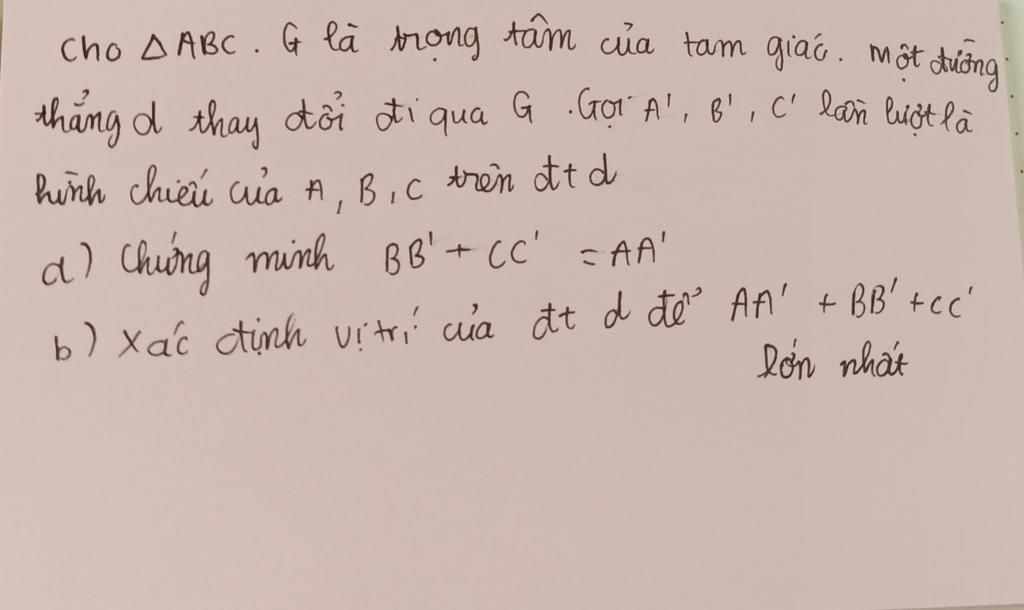 Cho △ABC. G là trọng tâm của tam giác. Một đường
thẳng d thay đổi đi qua G. Gọi A', B', C' lần lượt là
hình chiếu của A, B, C trên đt d
a) Chứng minh BB' + CC' = AA'
b) Xác định vị trí của đt d để AA' + BB' + CC'
lớn nhất